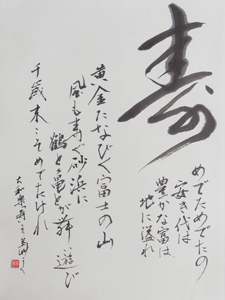 寿
めでためでたの
安き代は
豊かな富は
地に溢れ
黄金たなびく富士の山
風も寿ぐ砂浜に
鶴と亀とが舞い遊び
千歳末こそめでたけれ
大和楽寿